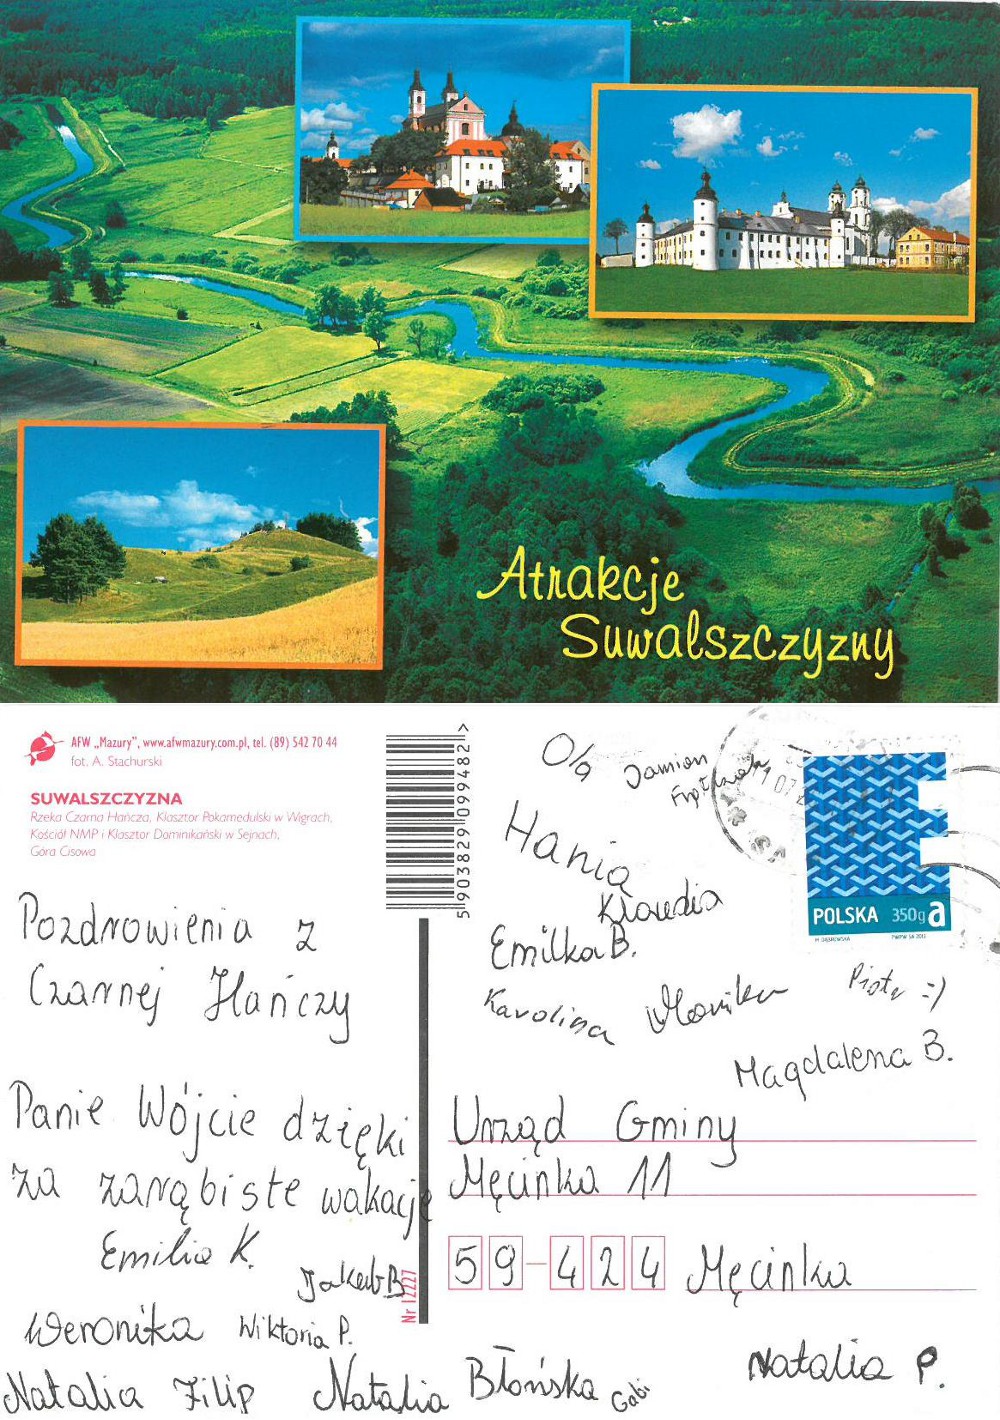 Atrakcje
Suwalszczyzny
AFW „Mazury”, www.afwmazury.com.pl, tel. (89) 542 70 44
fot. A. Stachurski
SUWALSZCZYZNA
Rzeka Czarna Hańcza, Klasztor Pokamedulski w Wigrach,
Kościół NMP i Klasztor Dominikański w Sejnach,
Góra Cisowa
5903829099482>
Ola
Damian
Hania
Klaudia
Emilka B.
Karolina
Monika
Piotr =)
Magdalena B.
POLSKA 350g a
Pozdrowienia z
Czarnej Hańczy
Panie Wójcie dzięki
za zarąbiste wakacje
Emilia K.
Jakub B
Weronika
Wiktoria P.
Natalia Filip
Natalia Błońska
Gabi
Natalia P.
Nr 12227
Urząd Gminy
Męcinka 11
59-424 Męcinka